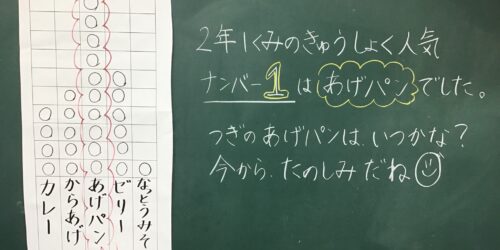 2年1くみのきゅうしょく人気
ナンバー1は あげパン でした。
つぎのあげパンは、いつかな?
今から、たのしみだね
カレー
からあげ
あげパン
ゼリー
なっとうみそ